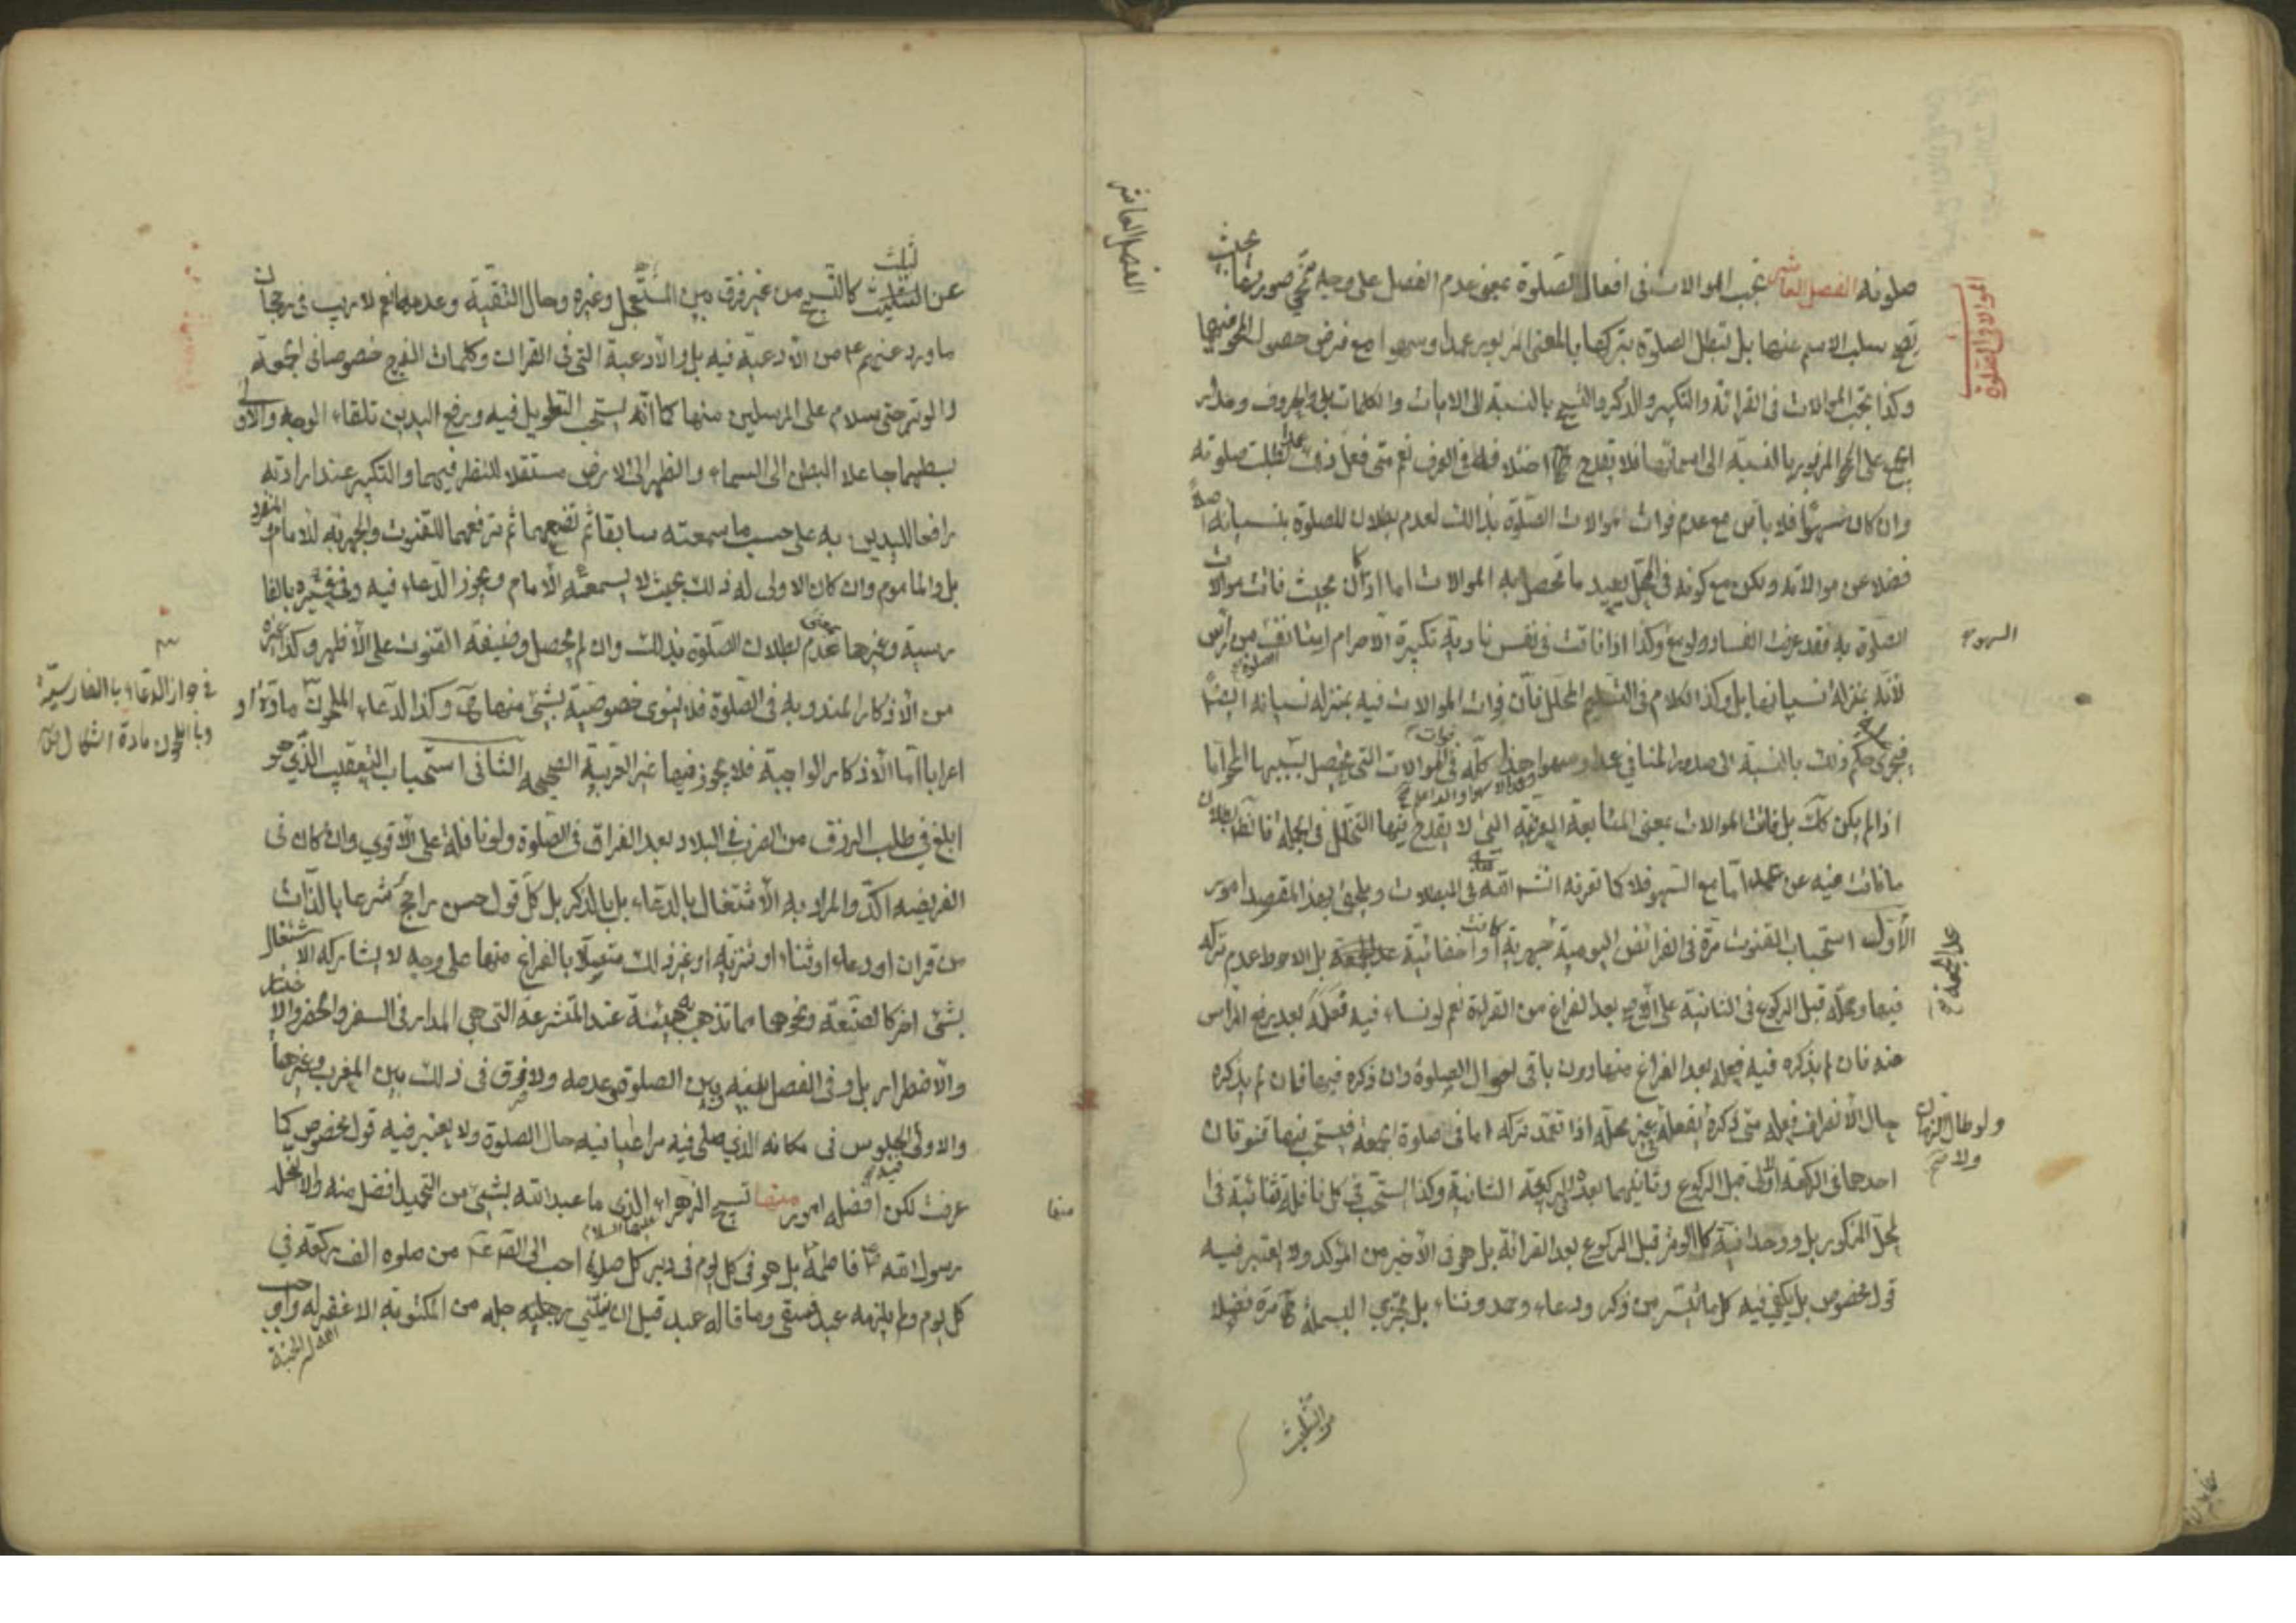 الموالاة في الصلوة
صلوته الفصل العاشر تجب الموالات فى افعال الصلوة بمعنى عدم الفصل على وجه تمحى صورتها بحيث
يصح سلب الاسم عنها بل تبطل الصلوة بتركها بالمعنى المزبور عمدا وسهوا مع فرض حصول المحو فيها
وكذا تجب الموالات فى القرائة والتكبير والذكر والتسبيح بالنسبة الى الايات والكلمات بل والحروف ومدار
المزبور بالنسبة الى اسمائها فلا يقدح فى العرف نعم متى فعل ذلك عمدا بطلت صلوته
وان كان سهوا فلا بأس مع عدم فوات موالات الصلوة بذالك لعدم بطلان للصلوة بنسيانه
فضلا عن موالاته ولكن مع كونه فى المحل يعيد ما تحصل به الموالات اما اذا كان بحيث فاتت موالات
الصلوة به فقد عرفت الفساد ولو سهوا وكذا اذا فاتت فى نفس تكبيرة الاحرام استانف من راس
السهو
لانه بمنزلة نسيانها بل وكذا الكلام فى التسليم المحلل فان فوات الموالات فيه بمنزلة نسيانه ايضا
فيجرى حكم ذلك بالنسبة الى صدور المنافي عمدا وسهوا هذا كله فى فوات الموالات التى يحصل بسببها المحو اما
اذا لم يكن كك بل فاتت الموالات بمعنى المتابعة العرفية التى لا يقدح فيها التخلل فى الجملة فالظ بطلان
ما فاتت فيه عن عمد اما مع السهو فلا كما تعرفه انشاء الله فى المبطلات ويلحق بهذا المقصد امور
الاول استحباب القنوت مرة فى الفرائض اليومية جهرية كانت او اخفاتية عدا الجمعة بل الاحوط عدم تركه
عدا الجمعة
فيها ومحله قبل الركوع فى الثانية بعد الفراغ من القرائة نعم لو نساه فيه فعله بعد رفع الراس
منه فان لم يذكره فيه فعله بعد الفراغ منها دون باقى احوال الصلوة وان ذكره فيها فان لم يذكره
حال الانصراف فعله متى ذكره فعله بغير محله اذا تعمد تركه اما فى صلوة الجمعة فيستحب فيها قنوتان
ولو طال الزمان
احدهما فى الركعة الاولى قبل الركوع وثانيهما بعده فى الركعة الثانية وكذا يستحب فى كل نافلة ثنائية فى
المحل المذكور بل ووحدانية كالوتر قبل الركوع بعد القرائة بل هو فى الاخير من المؤكد ولا يعتبر فيه
قول مخصوص بل يكفى فيه كل ما تيسر من ذكر ودعاء وحمد وثناء بل يجزي البسملة مرة فضلا
عن التثليث
الفصل العاشر
عن التثليث كالتسبيح من غير فرق بين المستعجل وغيره وحال التقية وعدمه نعم لا ريب فى رجحان
ما ورد عنهم ع من الادعية فيه بل والادعية التى فى القران وكلمات الفرج خصوصا فى الجمعة
والوتر حتى سلام على المرسلين منها كما انه يستحب التطويل فيه ورفع اليدين تلقاء الوجه والاولى
بسطهما جاعلا البطن الى السماء والظهر الى الارض مستقلا للنظر فيهما والتكبير عند ارادته
رافعا لليدين به على حسب ما سمعته سابقا ثم تضعهما ثم ترفعهما للقنوت والجهر به للامام والمنفرد
بل والماموم وان كان الاولى له ذلك بحيث لا يسمعه الامام ويجوز الدعاء فيه وفى غيره بالفا
رسية وغيرها بمعنى عدم بطلان الصلوة بذلك وان لم يحصل وظيفة القنوت على الاظهر وكذا غيره
من الاذكار المندوبة فى الصلوة فلا ينوى خصوصية بشئ منها وكذا الدعاء الملحون مادة او
فى جواز الدعاء بالفارسية
وبالملحون مادة
اعرابا اما الاذكار الواجبة فلا يجوز فيها غير العربية الصحيحه الثانى استحباب التعقيب الذي هو
ابلغ في طلب الرزق من الضرب فى البلاد بعد الفراق فى الصلوة ولو نافلة على الاقوي وان كان فى
الفريضه اكد والمراد به الاشتغال بالدعاء بل بالذكر بل كل قول حسن راجح شرعا بالذات
من قران او دعاء او ثناء او تنزيه او غير ذلك متصلا بالفراغ منها على وجه لا يشاركه الاشتغال
بشئ اخر كالصنعة ونحوها مما تذهب به هيئة عند المتشرعة التى هي المدار فى السفر والحضر والاختيار
والاضطرار بل وفى الفصل بينه وبين الصلوة وعدمه ولا فرق فى ذلك بين المغرب وغيرها
والاولى الجلوس فى مكانه الذي صلى فيه مراعيا فيه حال الصلوة ولا يعتبر فيه قول مخصوص كما
عرفت لكن افضله امور منها تسبيح الزهراء عليها السلام الذى ما عبد الله بشئ من التحميد افضل منه والا لنحله
منها
رسول الله ص فاطمة ع بل هو فى كل يوم فى دبر كل صلوة احب الى القرعة من صلوة الف ركعة في
كل يوم ولم يلزمه عبد فشقى وما قاله عبد قبل ان يثنى رجليه من المكتوبة الا غفر له واوجب
الله له الجنة